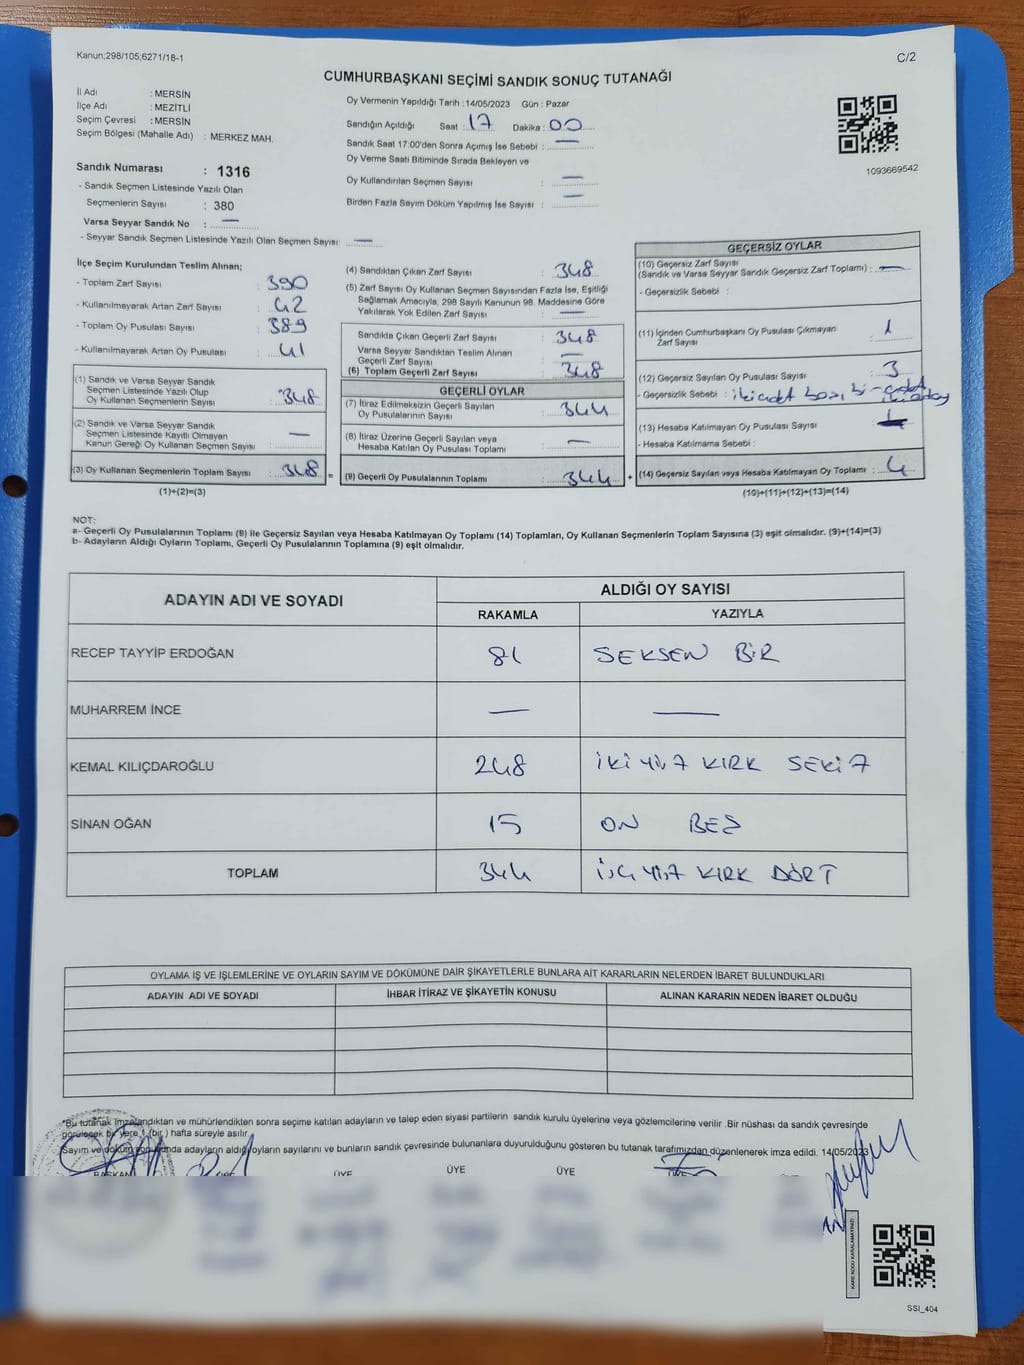 Kanun;298/105;6271/18-1
C/2
CUMHURBAŞKANI SEÇİMİ SANDIK SONUÇ TUTANAĞI
İl Adı : MERSİN
İlçe Adı : MEZİTLİ
Seçim Çevresi : MERSİN
Seçim Bölgesi (Mahalle Adı) : MERKEZ MAH.
Sandık Numarası : 1316
- Sandık Seçmen Listesinde Yazılı Olan
Seçmenlerin Sayısı : 380
Varsa Seyyar Sandık No : —
- Seyyar Sandık Seçmen Listesinde Yazılı Olan Seçmen Sayısı: —
Oy Vermenin Yapıldığı Tarih : 14/05/2023 Gün : Pazar
Sandığın Açıldığı Saat : 17 Dakika : 00
Sandık Saat 17:00'den Sonra Açımış İse Sebebi : —
Oy Verme Saati Bitiminde Sırada Bekleyen ve
Oy Kullandırılan Seçmen Sayısı : —
Birden Fazla Sayım Döküm Yapılmış İse Sayısı : —
1093669542
İlçe Seçim Kurulundan Teslim Alınan;
- Toplam Zarf Sayısı : 390
- Kullanılmayarak Artan Zarf Sayısı : 42
- Toplam Oy Pusulası Sayısı : 389
- Kullanılmayarak Artan Oy Pusulası : 41
(1) Sandık ve Varsa Seyyar Sandık
Seçmen Listesinde Yazılı Olup
Oy Kullanan Seçmenlerin Sayısı : 348
(2) Sandık ve Varsa Seyyar Sandık
Seçmen Listesinde Kayıtlı Olmayan
Kanun Gereği Oy Kullanan Seçmen Sayısı : —
(3) Oy Kullanan Seçmenlerin Toplam Sayısı : 348
(1)+(2)=(3)
(4) Sandıktan Çıkan Zarf Sayısı : 348
(5) Zarf Sayısı Oy Kullanan Seçmen Sayısından Fazla İse, Eşitliği
Sağlamak Amacıyla, 298 Sayılı Kanunun 98. Maddesine Göre
Yakılarak Yok Edilen Zarf Sayısı : —
Sandıkta Çıkan Geçerli Zarf Sayısı : 348
Varsa Seyyar Sandıktan Teslim Alınan
Geçerli Zarf Sayısı : —
(6) Toplam Geçerli Zarf Sayısı : 348
GEÇERLİ OYLAR
(7) İtiraz Edilmeksizin Geçerli Sayılan
Oy Pusulalarının Sayısı : 344
(8) İtiraz Üzerine Geçerli Sayılan veya
Hesaba Katılan Oy Pusulası Toplamı : —
(9) Geçerli Oy Pusulalarının Toplamı : 344
=
+
GEÇERSİZ OYLAR
(10) Geçersiz Zarf Sayısı
(Sandık ve Varsa Seyyar Sandık Geçersiz Zarf Toplamı) : —
- Geçersizlik Sebebi :
(11) İçinden Cumhurbaşkanı Oy Pusulası Çıkmayan
Zarf Sayısı : 1
(12) Geçersiz Sayılan Oy Pusulası Sayısı : 3
- Geçersizlik Sebebi : iki adet boş, bir adet
(13) Hesaba Katılmayan Oy Pusulası Sayısı :
- Hesaba Katılmama Sebebi :
(14) Geçersiz Sayılan veya Hesaba Katılmayan Oy Toplamı : 4
(10)+(11)+(12)+(13)=(14)
NOT:
a- Geçerli Oy Pusulalarının Toplamı (9) ile Geçersiz Sayılan veya Hesaba Katılmayan Oy Toplamı (14) Toplamları, Oy Kullanan Seçmenlerin Toplam Sayısına (3) eşit olmalıdır. (9)+(14)=(3)
b- Adayların Aldığı Oyların Toplamı, Geçerli Oy Pusulalarının Toplamına (9) eşit olmalıdır.
ADAYIN ADI VE SOYADI ALDIĞI OY SAYISI
RAKAMLA YAZIYLA
RECEP TAYYİP ERDOĞAN 81 SEKSEN BİR
MUHARREM İNCE — —
KEMAL KILIÇDAROĞLU 248 İKİ YÜZ KIRK SEKİZ
SİNAN OĞAN 15 ON BEŞ
TOPLAM 344 ÜÇ YÜZ KIRK DÖRT
OYLAMA İŞ VE İŞLEMLERİNE VE OYLARIN SAYIM VE DÖKÜMÜNE DAİR ŞİKAYETLERLE BUNLARA AİT KARARLARIN NELERDEN İBARET BULUNDUKLARI
ADAYIN ADI VE SOYADI İHBAR İTİRAZ VE ŞİKAYETİN KONUSU ALINAN KARARIN NEDEN İBARET OLDUĞU
"Bu tutanak imzalandıktan ve mühürlendikten sonra seçime katılan adayların ve talep eden siyasi partilerin sandık kurulu üyelerine veya gözlemcilerine verilir .Bir nüshası da sandık çevresinde
görülecek bir yere 1 (bir ) hafta süreyle asılır.
Sayım ve döküm sonunda adayların aldığı oyların sayılarını ve bunların sandık çevresinde bulunanlara duyurulduğunu gösteren bu tutanak tarafımızdan düzenlenerek imza edildi. 14/05/2023
BAŞKAN ÜYE ÜYE ÜYE ÜYE
KARE KODU KARALAMAYINIZ!
SSI_404